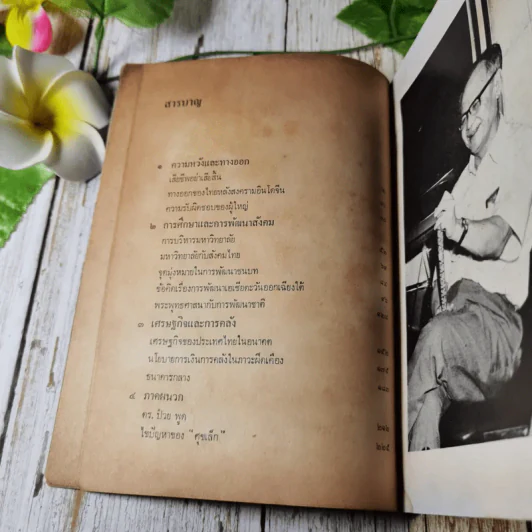 สารบาญ
๑ ความหวังและทางออก
เสียชีพอย่าเสียสิ้น
ทางออกของไทยหลังสงครามอินโดจีน
ความรับผิดชอบของผู้ใหญ่
๒ การศึกษาและการพัฒนาสังคม
การบริหารมหาวิทยาลัย
มหาวิทยาลัยกับสังคมไทย
จุดมุ่งหมายในการพัฒนาชนบท
ข้อคิดเรื่องการพัฒนาเอเชียตะวันออกเฉียงใต้
พระพุทธศาสนากับการพัฒนาชาติ
๓ เศรษฐกิจและการคลัง
เศรษฐกิจของประเทศไทยในอนาคต
นโยบายการเงินการคลังในภาวะฝืดเคือง
ธนาคารกลาง
๔ ภาคผนวก
ดร. ป๋วย พูด ๒๑๑
ไขปัญหาของ "ศุขเล็ก" ๒๒๕